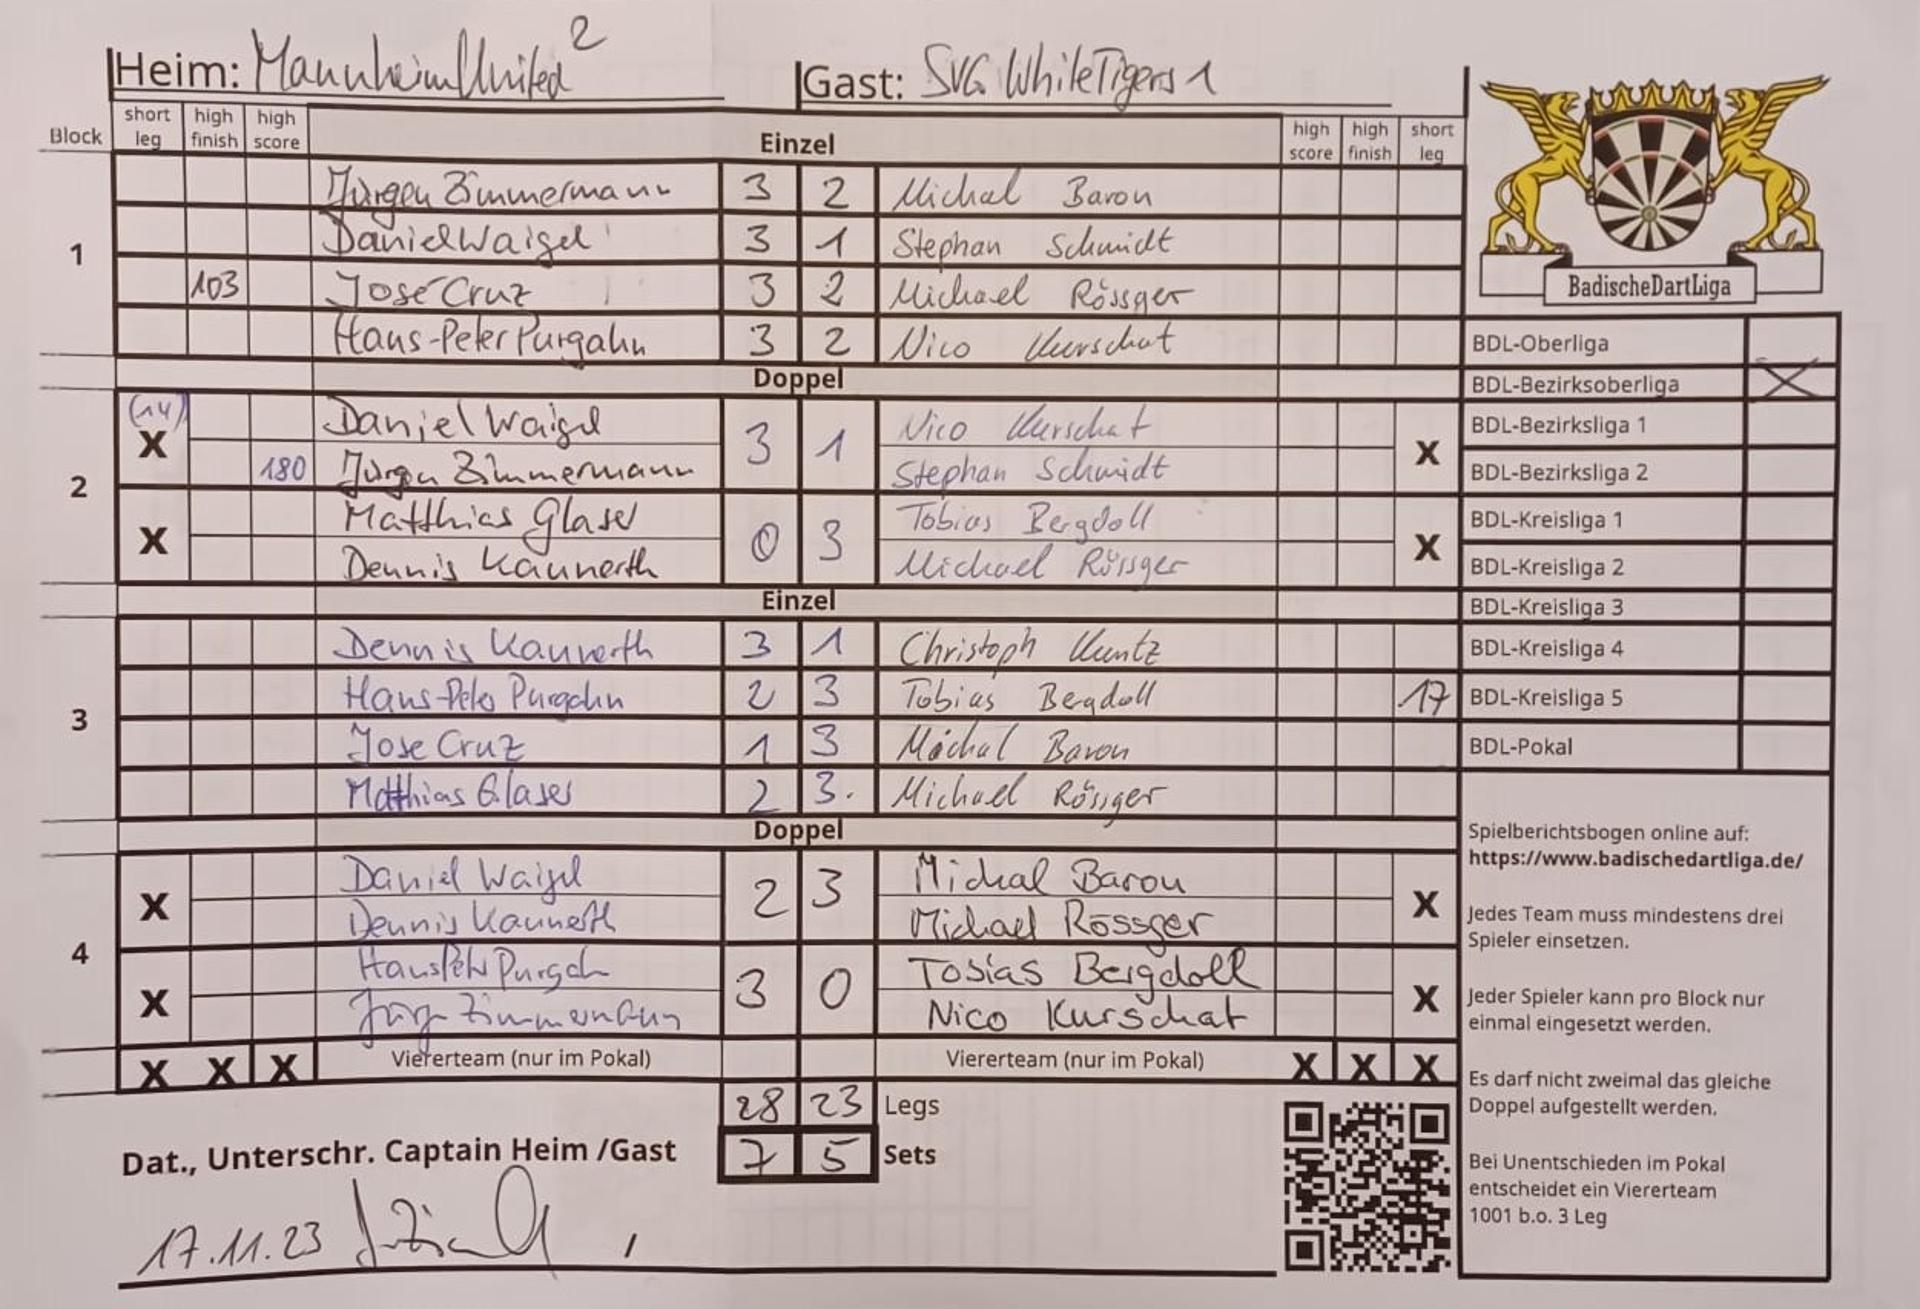 Heim: Mannheim United 2 Gast: SVG White Tigers 1
Block short leg high finish high score Einzel high score high finish short leg
1
Jürgen Zimmermann 3 2 Michal Baron
Daniel Waigel 3 1 Stephan Schmidt
103 Jose Cruz 3 2 Michael Rössger
Hans-Peter Purgahn 3 2 Nico Kurschat
Doppel
2
(14) X Daniel Waigel 3 1 Nico Kurschat X
180 Jürgen Zimmermann Stephan Schmidt
X Matthias Glaser 0 3 Tobias Bergdoll X
Dennis Kannerth Michael Rössger
Einzel
3
Dennis Kannerth 3 1 Christoph Kuntz
Hans-Peter Purgahn 2 3 Tobias Bergdoll 17
Jose Cruz 1 3 Michal Baron
Matthias Glaser 2 3. Michael Rössger
Doppel
4
X Daniel Waigel 2 3 Michal Baron X
Dennis Kannerth Michael Rössger
X Hans Peter Purgah 3 0 Tobias Bergdoll X
Jürgen Zimmermann Nico Kurschat
X X X Viererteam (nur im Pokal) Viererteam (nur im Pokal) X X X
28 23 Legs
7 5 Sets
Dat., Unterschr. Captain Heim /Gast
17.11.23
BadischeDartLiga
BDL-Oberliga
BDL-Bezirksoberliga X
BDL-Bezirksliga 1
BDL-Bezirksliga 2
BDL-Kreisliga 1
BDL-Kreisliga 2
BDL-Kreisliga 3
BDL-Kreisliga 4
BDL-Kreisliga 5
BDL-Pokal
Spielberichtsbogen online auf:
https://www.badischedartliga.de/
Jedes Team muss mindestens drei
Spieler einsetzen.
Jeder Spieler kann pro Block nur
einmal eingesetzt werden.
Es darf nicht zweimal das gleiche
Doppel aufgestellt werden.
Bei Unentschieden im Pokal
entscheidet ein Viererteam
1001 b.o. 3 Leg